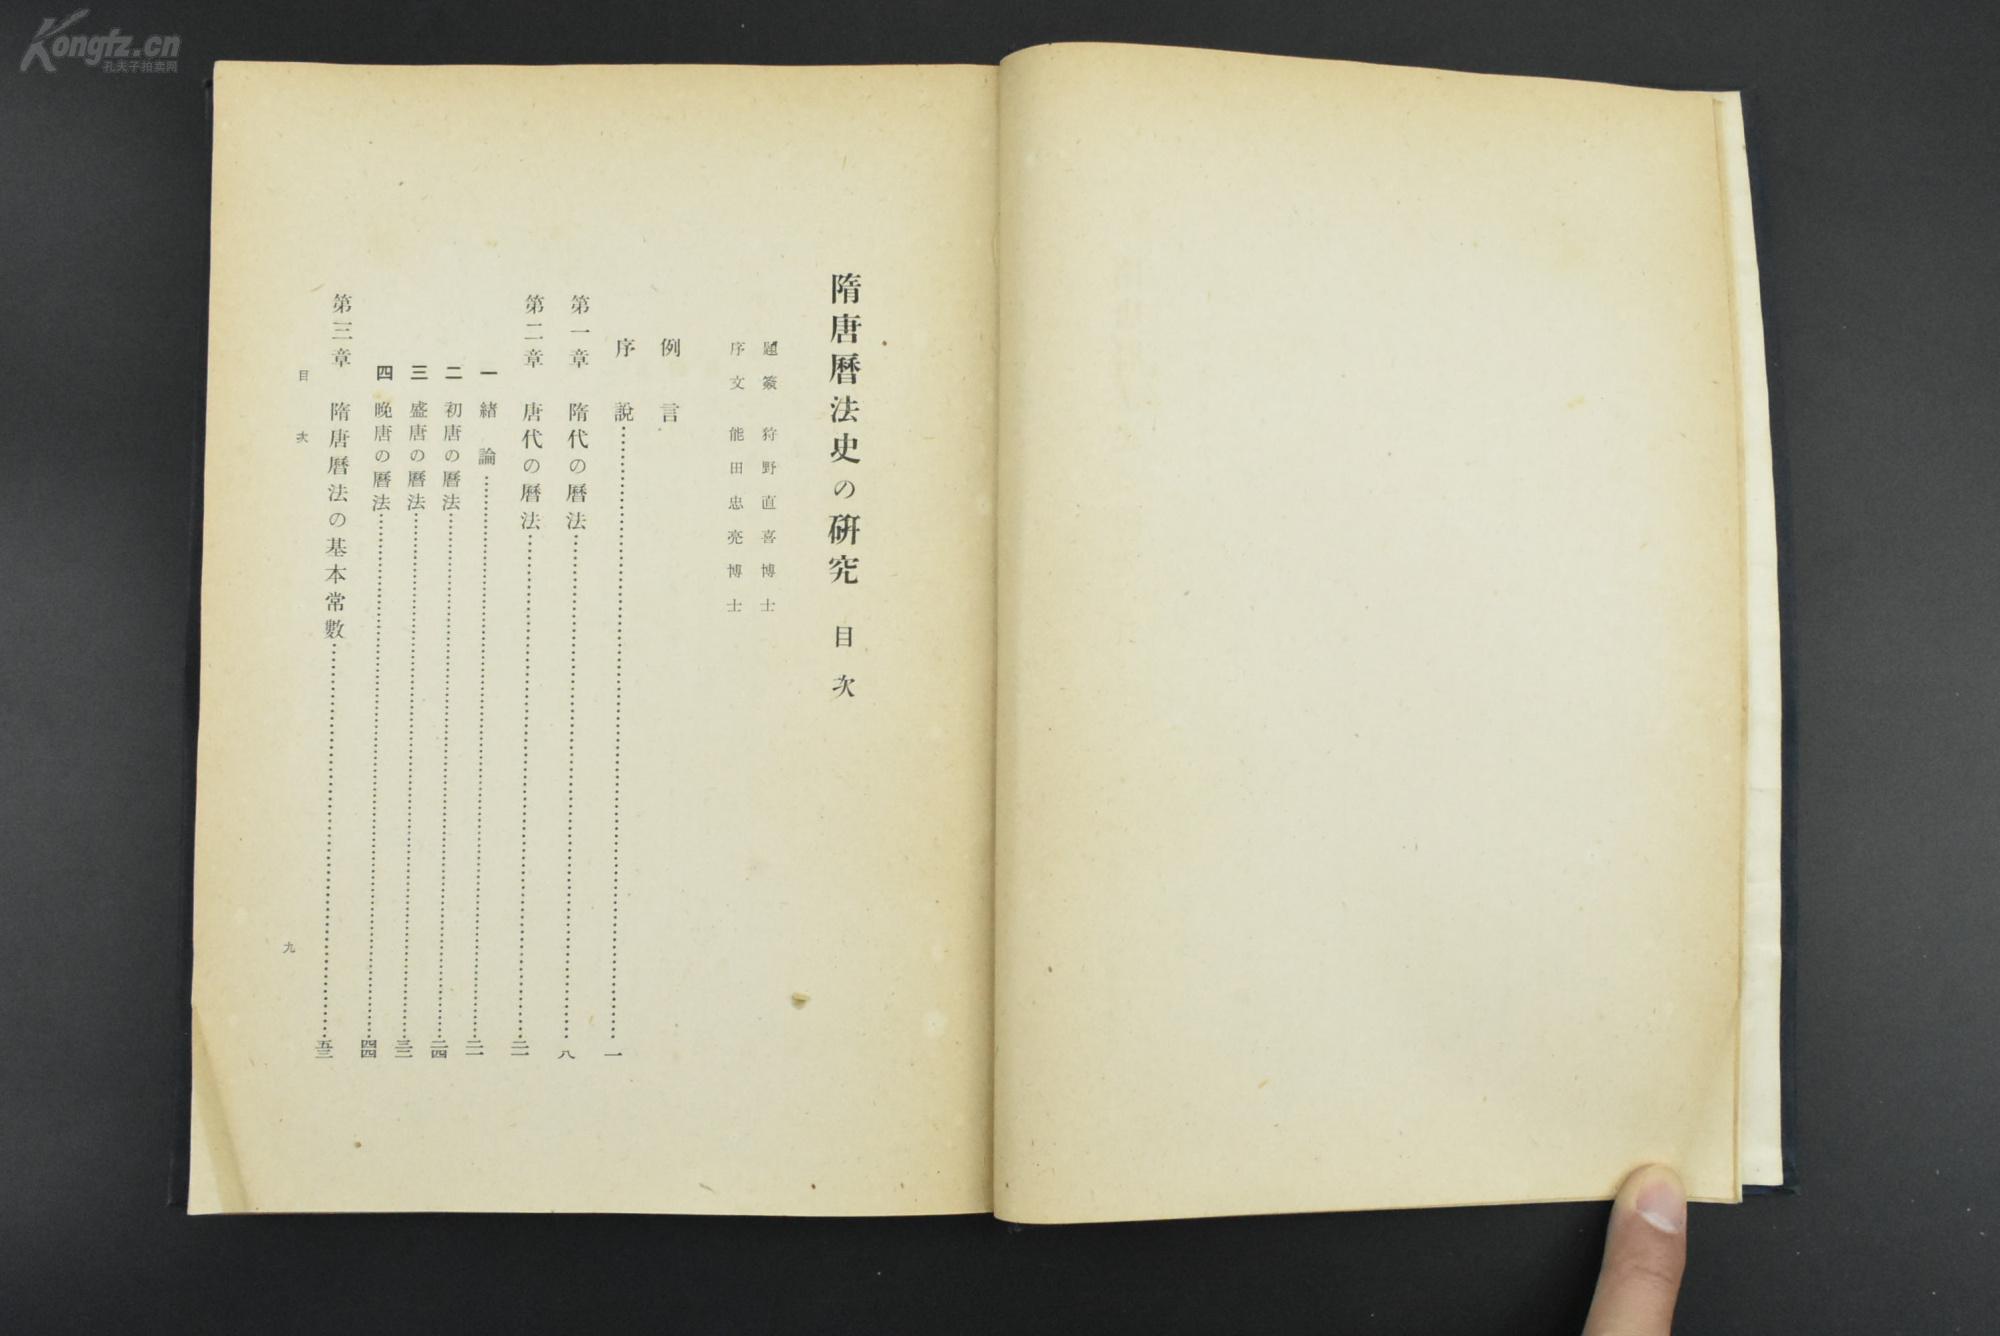 Kongfz.cn
孔夫子拍卖网
隋唐曆法史の硏究 目次
題簽 狩野直喜博士
序文 能田忠亮博士
例言
序說……一
第一章 隋代の曆法……八
第二章 唐代の曆法……二一
一 緖論……二一
二 初唐の曆法……二四
三 盛唐の曆法……三二
四 晚唐の曆法……四四
第三章 隋唐曆法の基本常數……五三
目次
九